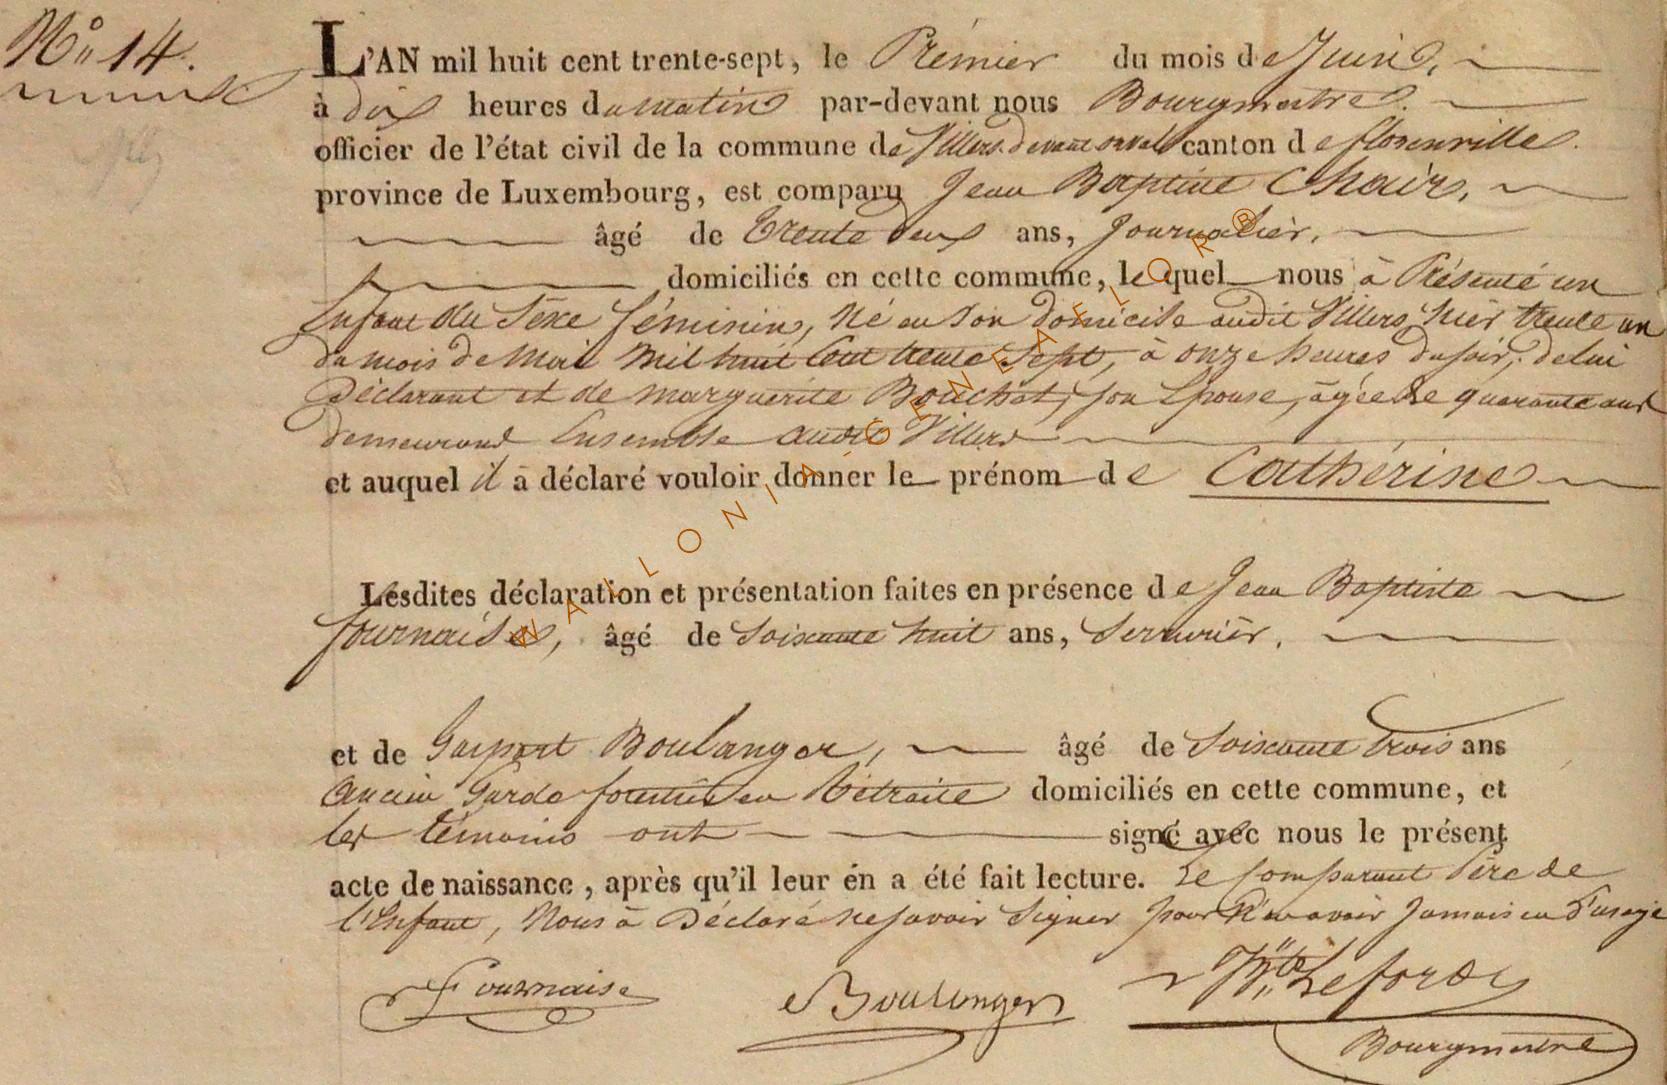 N° 14.
L'AN mil huit cent trente-sept, le Prémier du mois de Juin,
à dix heures du matin par-devant nous Bourgmestre.
officier de l'état civil de la commune de Villers devant orval canton de florenville.
province de Luxembourg, est comparu Jean Baptiste Choir,
âgé de trente deux ans, Journalier,
domiciliés en cette commune, le quel nous à Présenté un
Enfant du Sexe féminin, Né en Son domicile audit Villers, hier trente un
du mois de Mai mil huit Cent trente Sept, à onze heures du soir, de lui
Déclarant et de marguerite Bouchot, son Epouse, âgée de quarante ans
demeurand Ensemble audit Villers
et auquel il a déclaré vouloir donner le prénom de Cathérine
Lesdites déclaration et présentation faites en présence de Jean Baptiste
fournaise, âgé de Soixante huit ans, Serrurier.
et de Gaspart Boulanger, âgé de Soixante trois ans
ancien Garde forestier en Rétraite domiciliés en cette commune, et
les témoins ont signé avec nous le présent
acte de naissance, après qu'il leur en a été fait lecture. Le Comparant Père de
l'Enfant, Nous à Déclaré ne savoir Signer pour N'en avoir Jamais eu d'usage
Fournaise Boulanger
Bourgmestre
WALLONIA-GENEAFLOR®